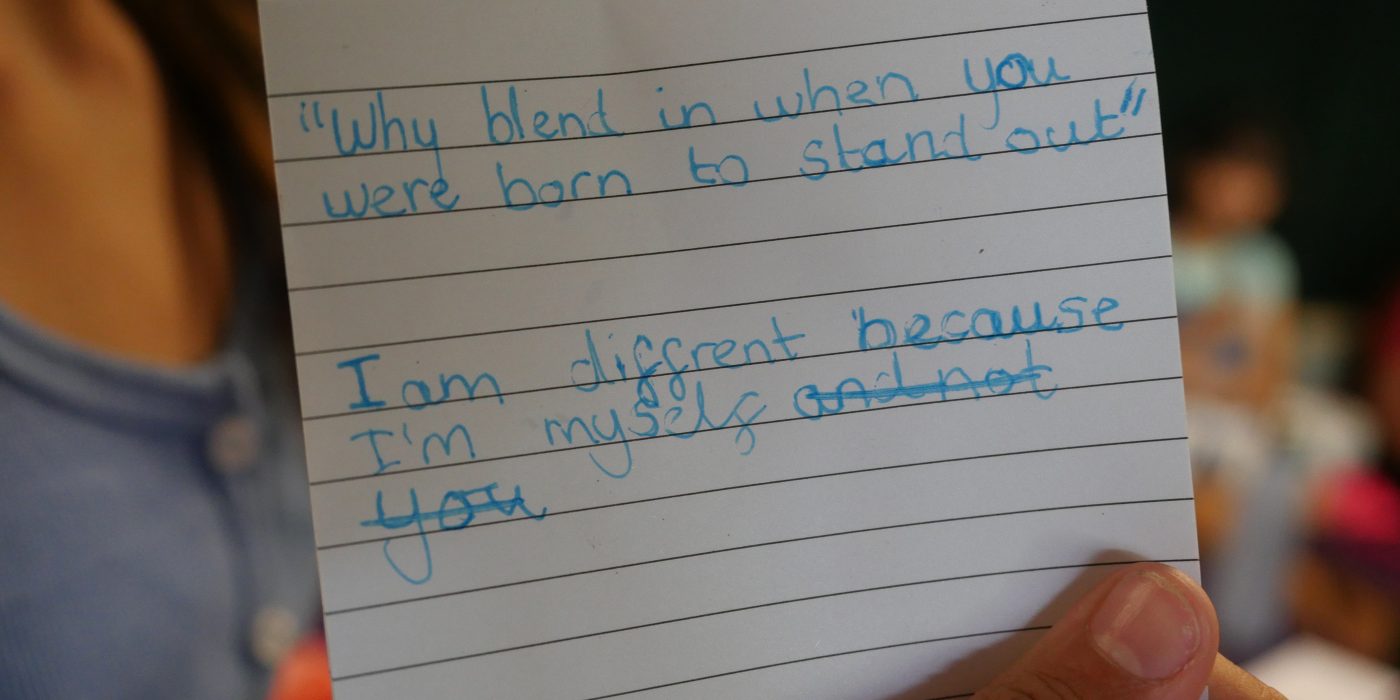 "Why blend in when you
were born to stand out"
I am diffrent because
I'm myself and not
you